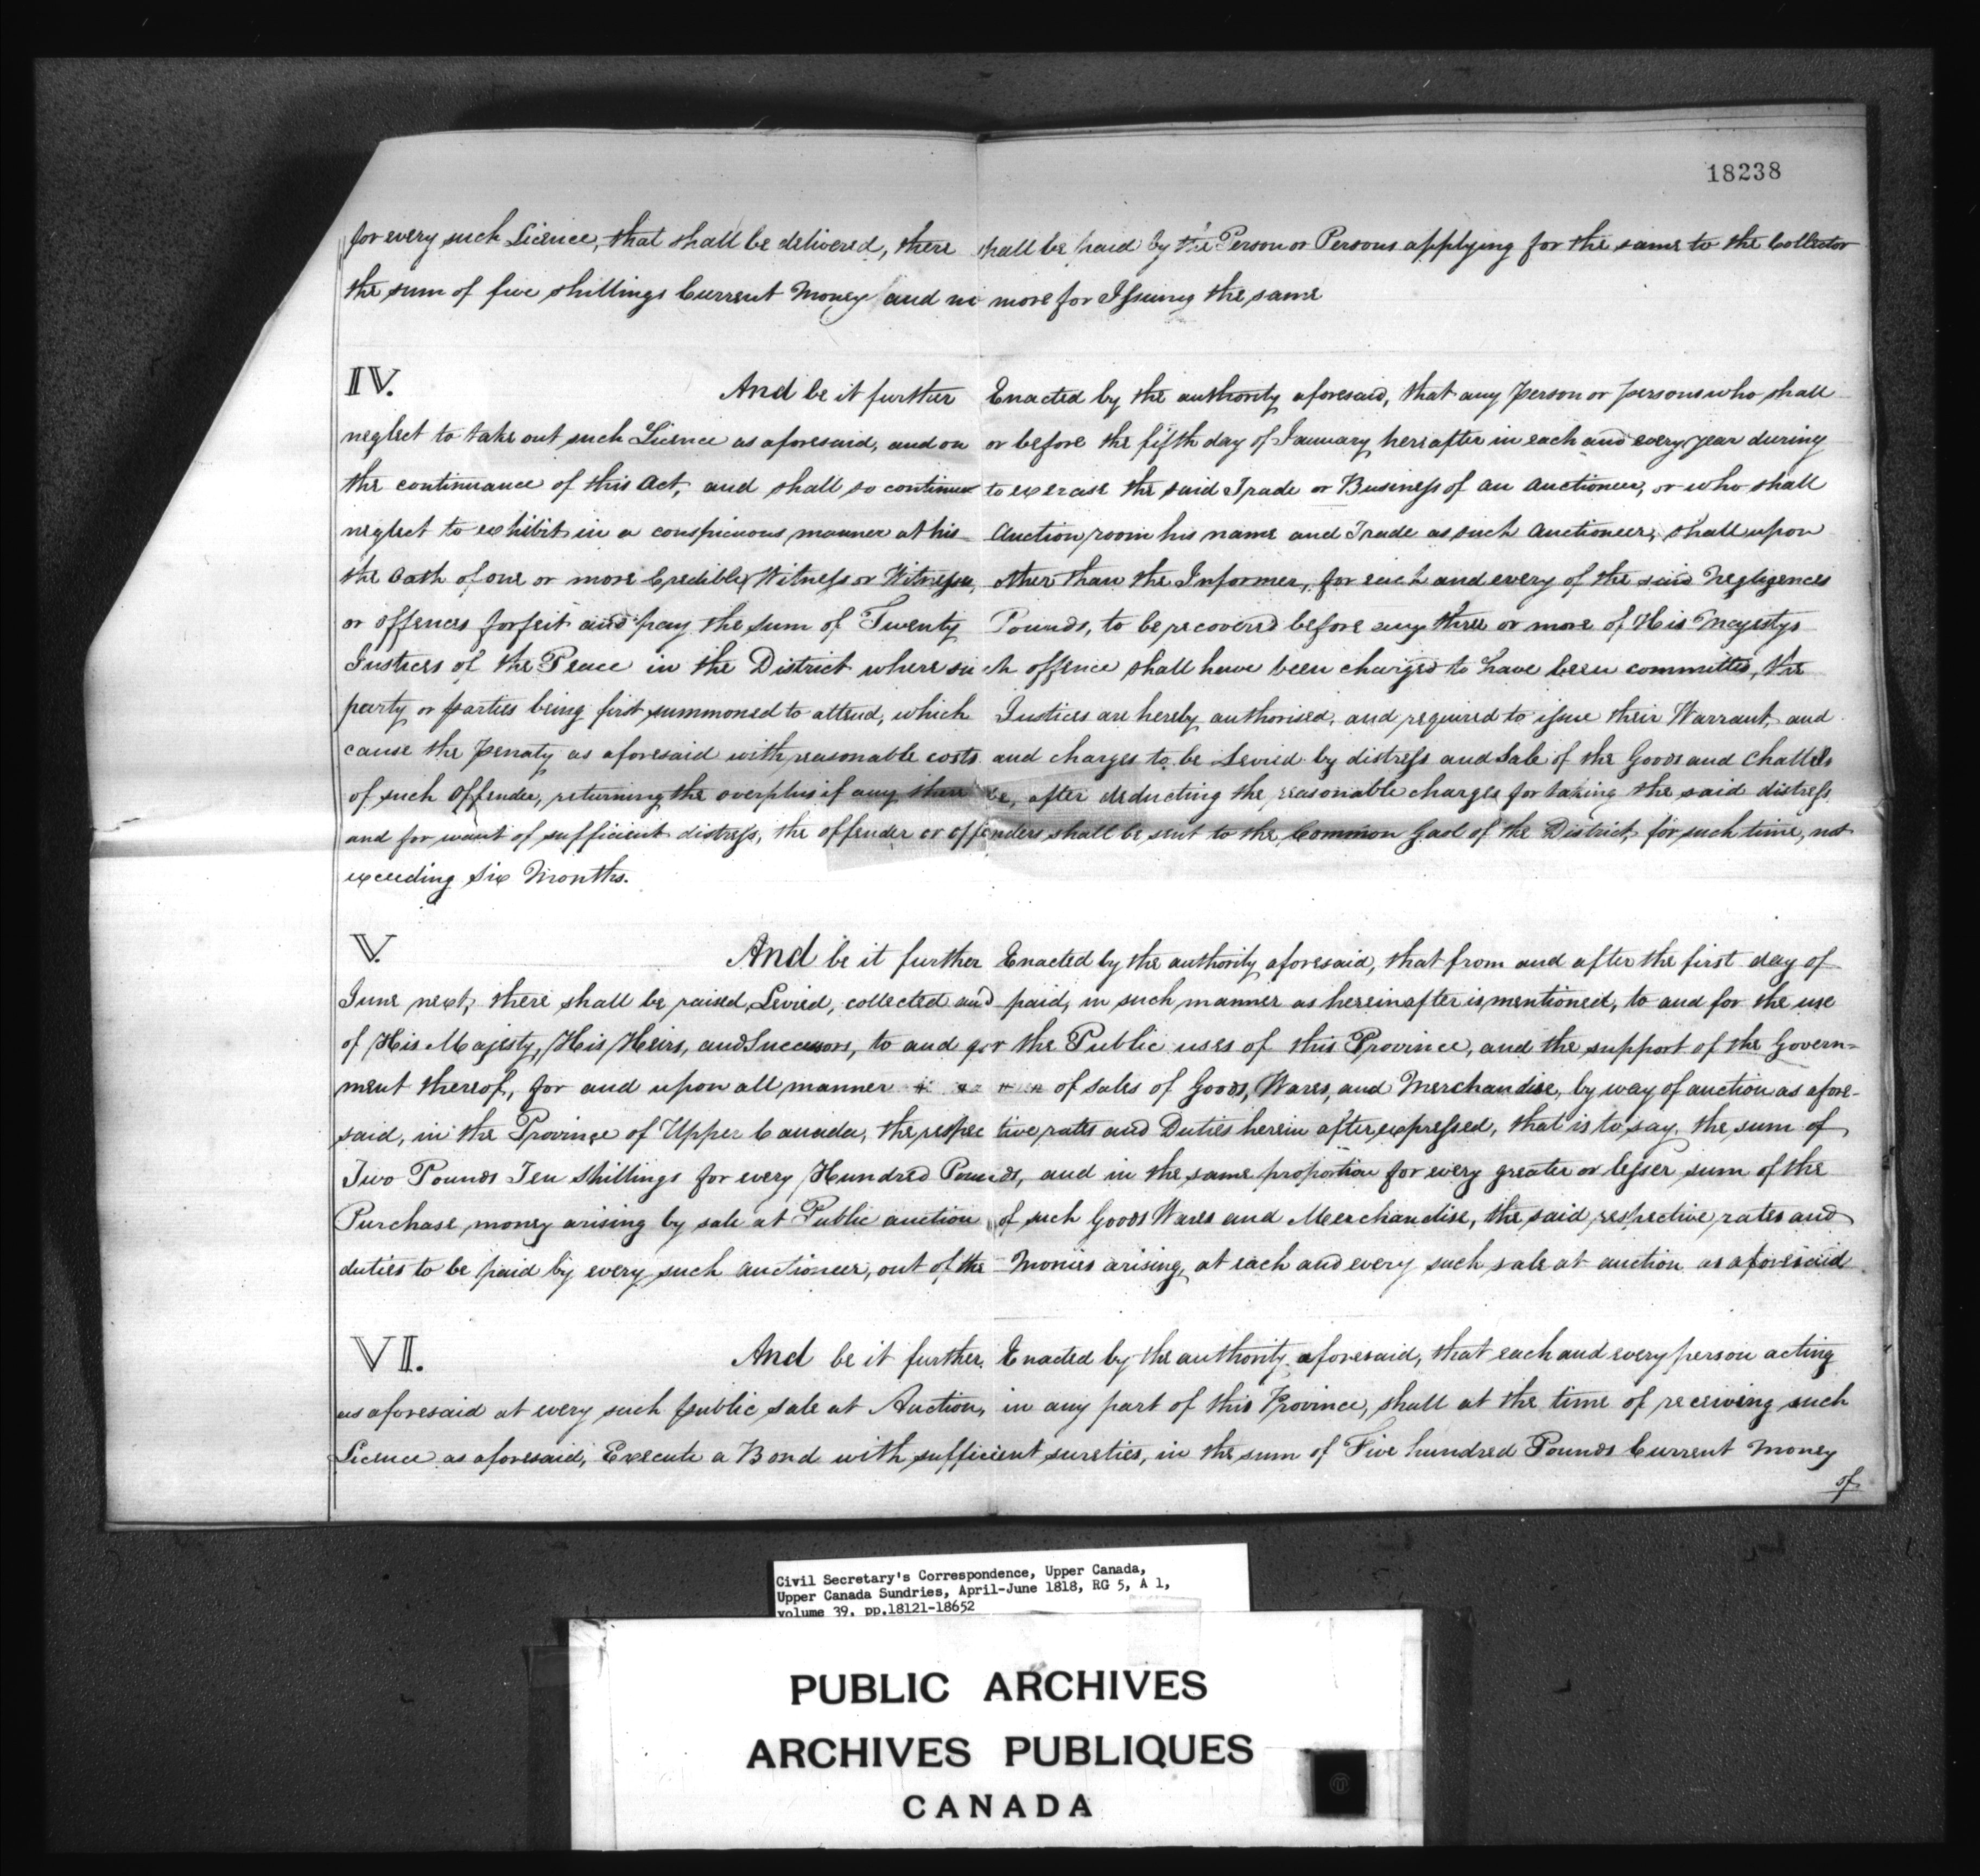 18238
for every such Licence, that shall be delivered, there shall be paid by the Person or Persons applying for the same to the Collector
the sum of five shillings Current Money and no more for Issuing the same
IV. And be it further Enacted by the authority aforesaid, that any person or persons who shall
neglect to take out such Licence as aforesaid, and on or before the fifth day of January hereafter in each and every year during
the continuance of this Act, and shall so continue to exercise the said Trade or Business of an Auctioneer, or who shall
neglect to exhibit in a conspicuous manner at his Auction room his name and Trade as such Auctioneer, shall upon
the Oath of one or more Credible Witness or Witnesses, other than the Informer, for each and every of the said Negligences
or offences forfeit and pay the sum of Twenty Pounds, to be recovered before any three or more of His Majestys
Justices of the Peace in the District where such offence shall have been charged to have been committed, the
party or parties being first summoned to attend, which Justices are hereby authorised, and required to issue their Warrant, and
cause the Penaty as aforesaid with reasonable costs and charges to be Levied by distress and Sale of the Goods and Chattels
of such Offender, returning the overplus if any there be, after deducting the reasonable charges for taking the said distress
and for want of sufficient distress, the offender or offenders shall be sent to the Common Gaol of the District, for such time, not
exceeding Six Months.
V. And be it further Enacted by the authority aforesaid, that from and after the first day of
June next, there shall be raised, Levied, collected and paid, in such manner as hereinafter is mentioned, to and for the use
of His Majesty, His Heirs, and Successors, to and for the Public uses of this Province, and the support of the Govern=
ment thereof, for and upon all manner of sales of Goods, Wares, and Merchandise, by way of auction as afore-
said, in the Province of Upper Canada, the respective rates and Duties herein after expressed, that is to say, the sum of
Two Pounds Ten Shillings for every Hundred Pounds, and in the same proportion for every greater or lesser sum of the
Purchase money arising by sale at Public auction of such Goods Wares and Merchandise, the said respective rates and
duties to be paid by every such auctioneer, out of the Monies arising, at each and every such sale at auction as aforesaid
VI. And be it further Enacted by the authority aforesaid, that each and every person acting
as aforesaid at every such public Sale at Auction, in any part of this Province, shall at the time of receiving such
Licence as aforesaid, Execute a Bond with sufficient sureties, in the sum of Five hundred Pounds Current Money
of
Civil Secretary's Correspondence, Upper Canada,
Upper Canada Sundries, April-June 1818, RG 5, A 1,
volume 39, pp.18121-18652
PUBLIC ARCHIVES
ARCHIVES PUBLIQUES
CANADA